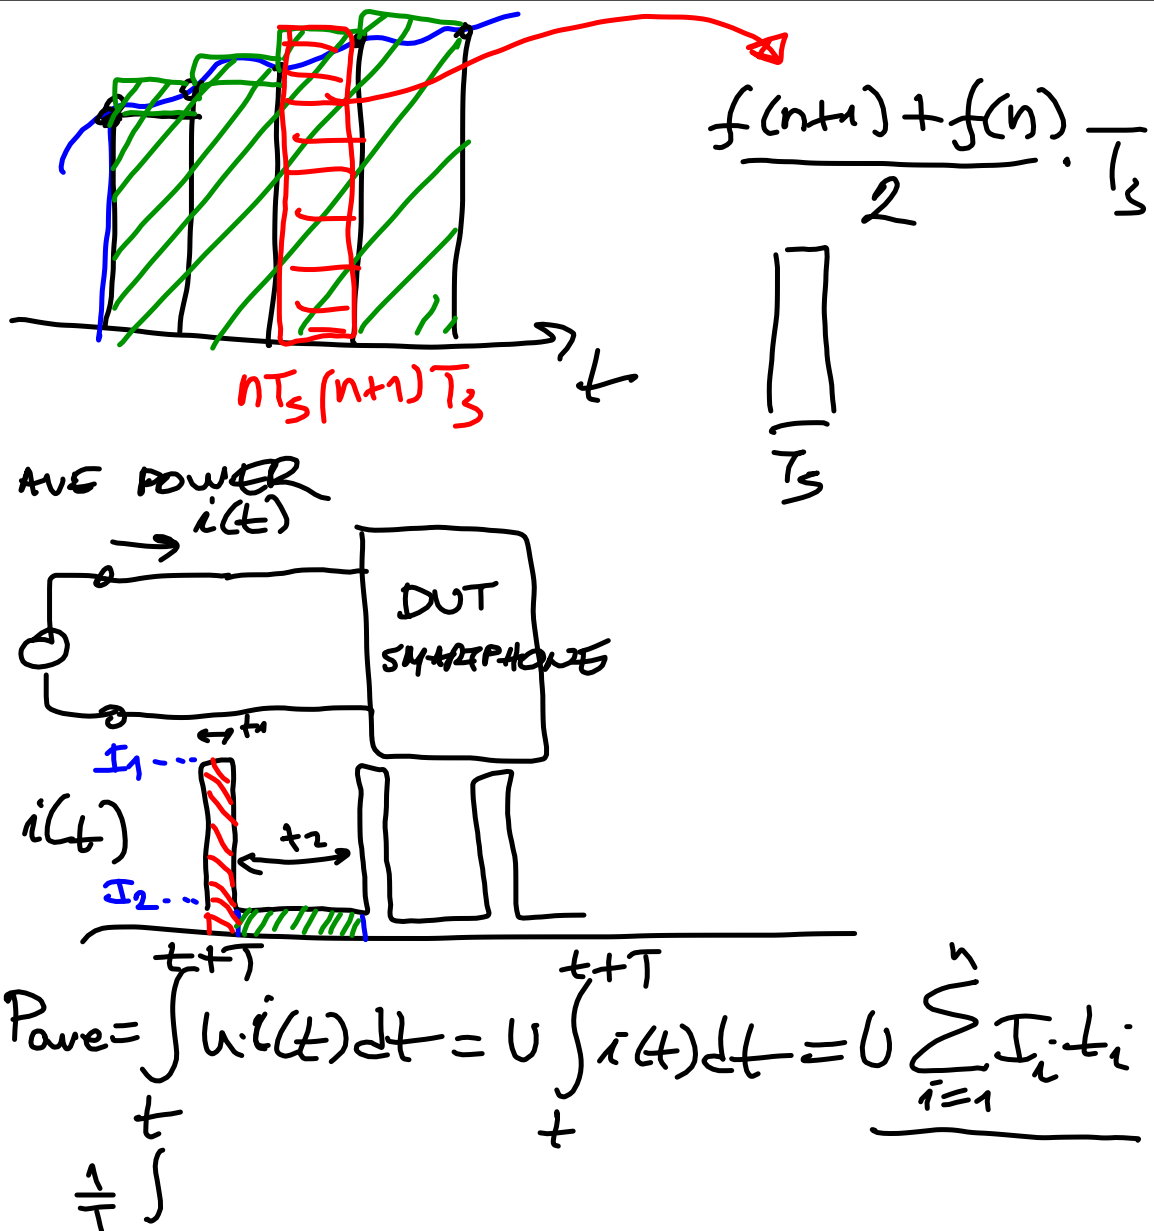 f(n+1) + f(n)
2
· Ts
t
nTs (n+1)Ts
Ts
AVE POWER
i(t)
DUT
SMARTPHONE
t1
I1
i(t)
t2
I2
Pave = ∫_t^{t+T} u·i(t)dt = U ∫_t^{t+T} i(t)dt = U ∑_{i=1}^{n} Ii·ti
1/T ∫